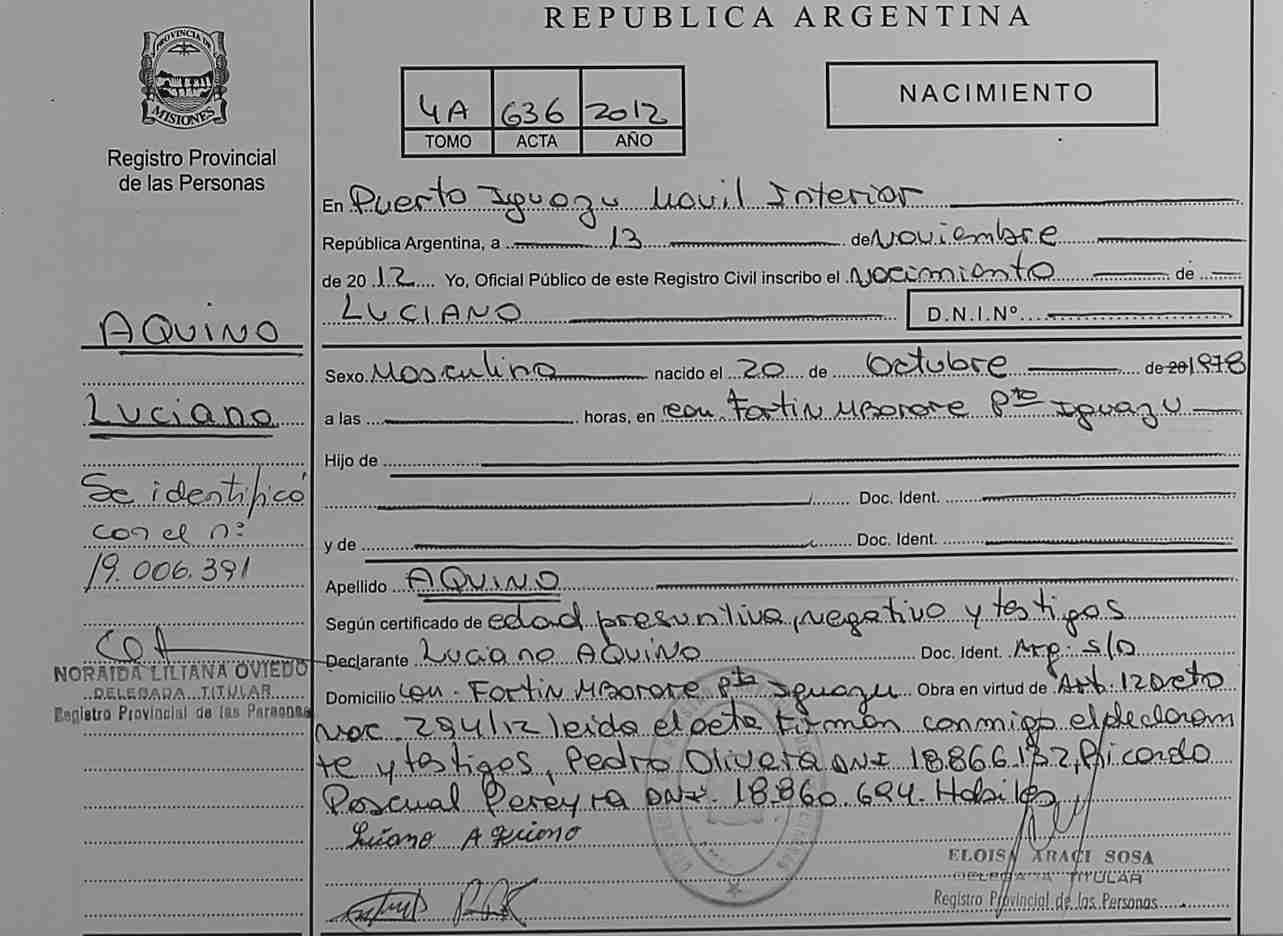 REPUBLICA ARGENTINA
PROVINCIA DE
MISIONES
Registro Provincial
de las Personas
4A 636 2012
TOMO ACTA AÑO
NACIMIENTO
En Puerto Iguazu Movil Interior
República Argentina, a 13 de Noviembre
de 20 12 Yo, Oficial Público de este Registro Civil inscribo el Nacimiento de
LUCIANO D.N.I.Nº
AQUINO
Luciano
Se identificó
con el nº
19.006.391
NORAIDA LILIANA OVIEDO
DELEGADA TITULAR
Registro Provincial de las Personas
Sexo Masculino nacido el 20 de Octubre de 20 1978
a las horas, en com. Fortin MBorore Pto Iguazu
Hijo de
Doc. Ident.
y de Doc. Ident.
Apellido AQUINO
Según certificado de edad presuntiva, negativo y testigos
Declarante Luciano AQUINO Doc. Ident. Arg. s/D
Domicilio Com. Fortin MBorore Pto Iguazu Obra en virtud de Art. 1 Dcto
Nac 294/12 leida el acta firman conmigo el declaran
te y testigos, Pedro Olivera DNI 18.866.132, Ricardo
Pascual Pereyra DNI. 18.860.694. Habiles
Luciano Aquino
ELOISA ARACI SOSA
DELEGADA TITULAR
Registro Provincial de las Personas